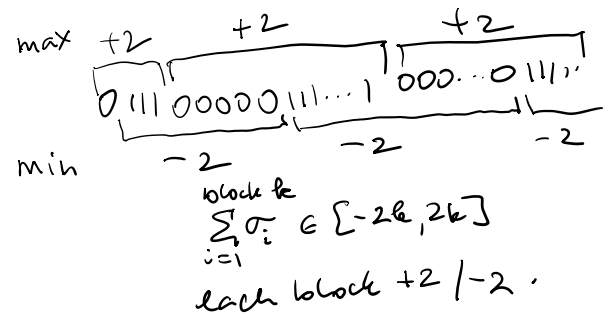 max +2 +2 +2
0 111 00000 111...1 000...0 111..
min -2 -2 -2
block k
∑ σi ∈ [-2k, 2k]
i=1
each block +2 / -2 .